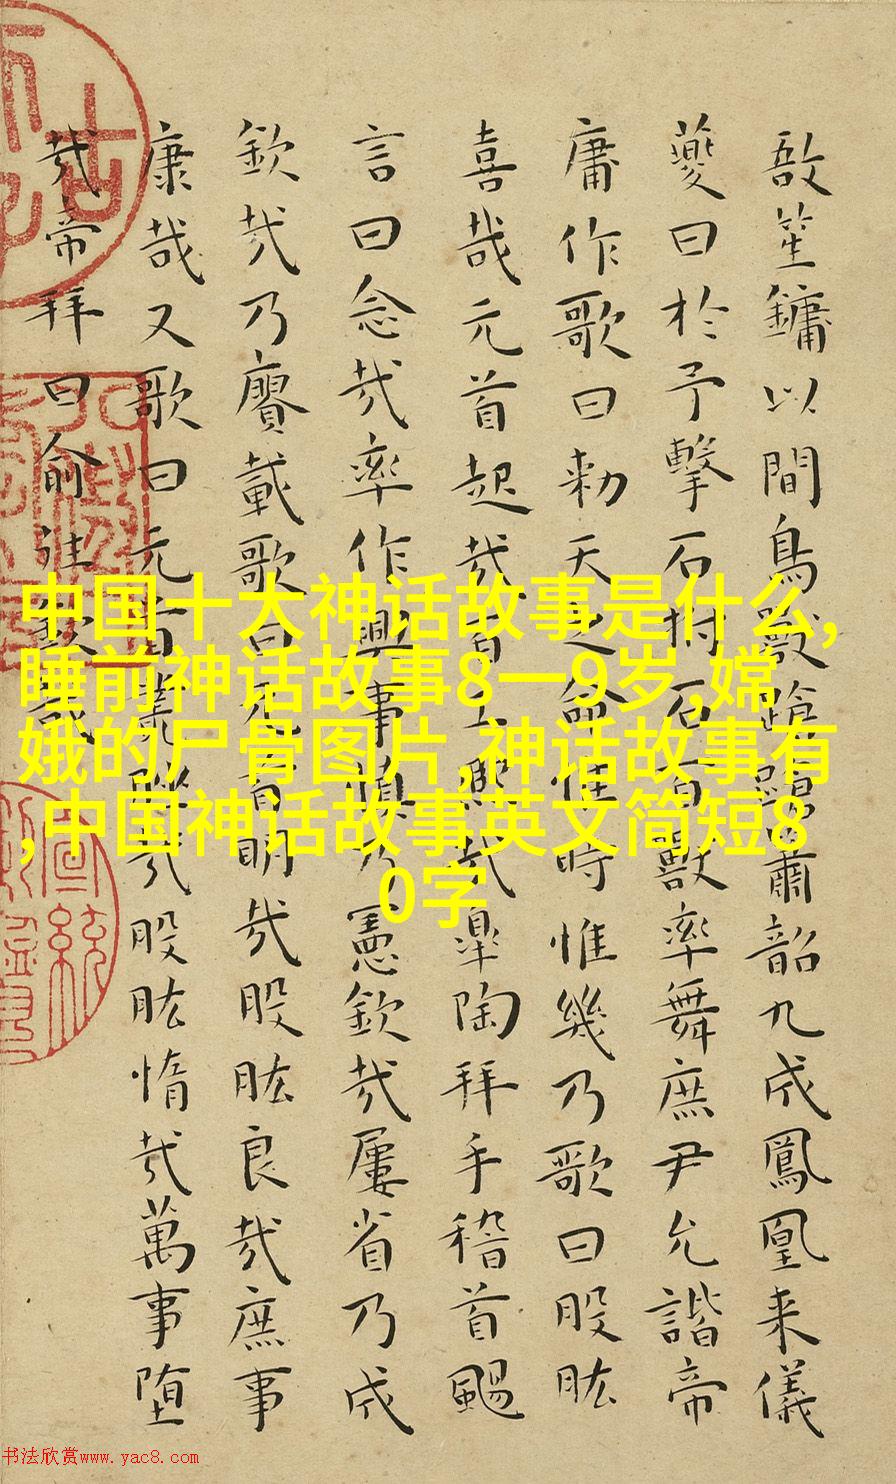 敔笙鏞以間鳥獸蹌蹌簫韶九成鳳凰来儀
夔曰於予擊石拊石百獸率舞庶尹允諧帝
庸作歌曰勑天之命惟時惟幾乃歌曰股肱
喜哉元首起哉百工熙哉皐陶拜手稽首颺
言曰念哉率作興事慎乃憲欽哉屢省乃成
欽哉乃賡載歌曰元首明哉股肱良哉庶事
康哉又歌曰元首叢脞哉股肱惰哉萬事堕
哉帝拜曰俞往欽哉
中国十大神话故事是什么,
睡前神话故事8一9岁,嫦
娥的尸骨图片,神话故事有
,中国神话故事英文简短8
0字
书法欣赏www.yac8.com